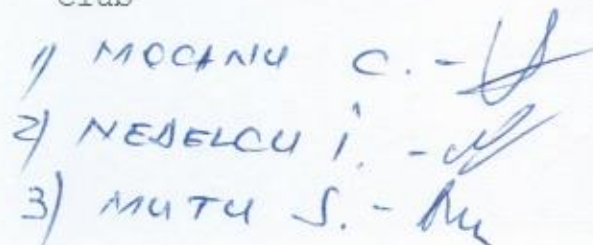 Club
1) MOCANU C. -
2) NEDELCU Î. -
3) MUTU S. -